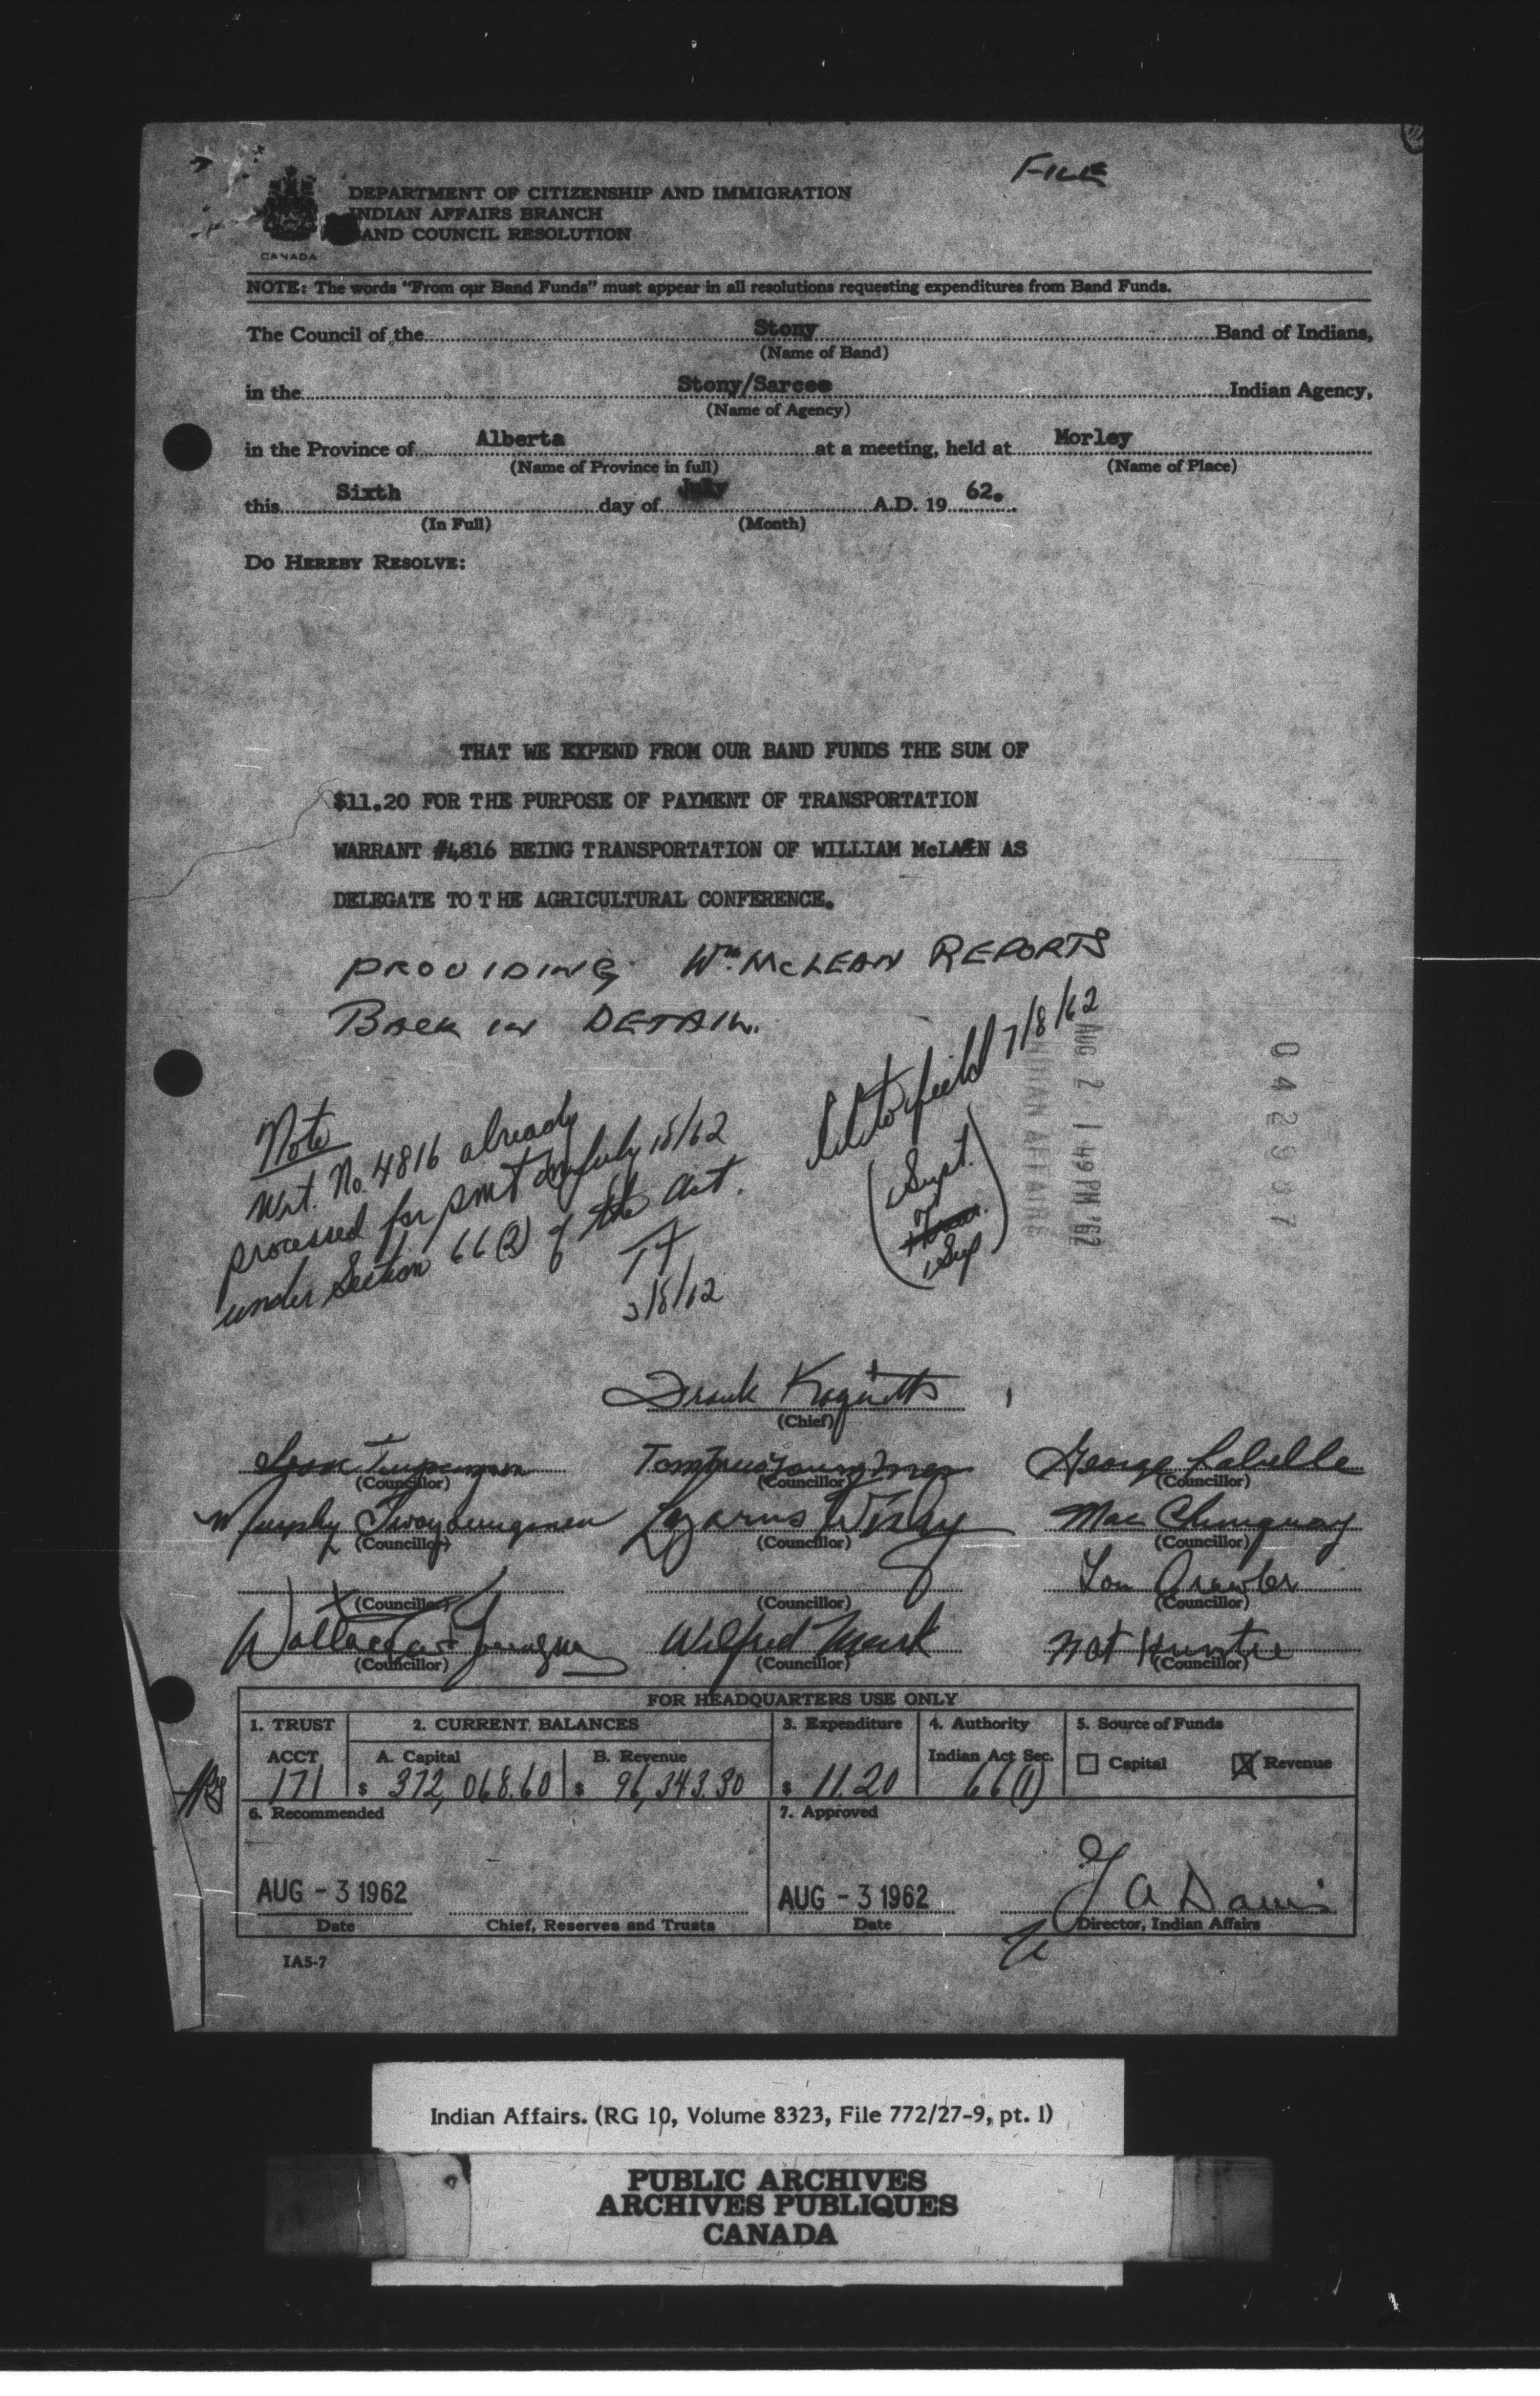 FILE
DEPARTMENT OF CITIZENSHIP AND IMMIGRATION
INDIAN AFFAIRS BRANCH
AND COUNCIL RESOLUTION
CANADA
NOTE: The words "From our Band Funds" must appear in all resolutions requesting expenditures from Band Funds.
The Council of the Stony Band of Indians,
(Name of Band)
in the Stony/Sarcee Indian Agency,
(Name of Agency)
in the Province of Alberta at a meeting, held at Morley
(Name of Province in full) (Name of Place)
this Sixth day of July A.D. 19 62.
(In Full) (Month)
DO HEREBY RESOLVE:
THAT WE EXPEND FROM OUR BAND FUNDS THE SUM OF
$11.20 FOR THE PURPOSE OF PAYMENT OF TRANSPORTATION
WARRANT #4816 BEING TRANSPORTATION OF WILLIAM McLEAN AS
DELEGATE TO T HE AGRICULTURAL CONFERENCE.
PROVIDING Wm. McLEAN REPORTS
BACK IN DETAIL.
7/8/62
AUG 2 1 49 PM '62
INDIAN AFFAIRS
042987
Note
Wrt. No. 4816 already
processed for pmt on July 18/62
under Section 66(2) of the Act.
(Supt.
Sup)
Frank
(Chief)
George Labelle
(Councillor) (Councillor) (Councillor)
Murphy Twoyoungmen Lazarus Wesley Mac Chiniquay
(Councillor) (Councillor) (Councillor)
Lou Crawler
(Councillor) (Councillor) (Councillor)
Wallace Wilfred Mark Nat Hunter
(Councillor) (Councillor) (Councillor)
FOR HEADQUARTERS USE ONLY
1. TRUST 2. CURRENT BALANCES 3. Expenditure 4. Authority 5. Source of Funds
ACCT A. Capital B. Revenue Indian Act Sec. Capital Revenue
171 $ 372,068.60 $ 96,343.30 $ 11.20 66(1)
6. Recommended 7. Approved
AUG - 3 1962 AUG - 3 1962
Date Chief, Reserves and Trusts Date Director, Indian Affairs
IA5-7
Indian Affairs. (RG 10, Volume 8323, File 772/27-9, pt. 1)
PUBLIC ARCHIVES
ARCHIVES PUBLIQUES
CANADA